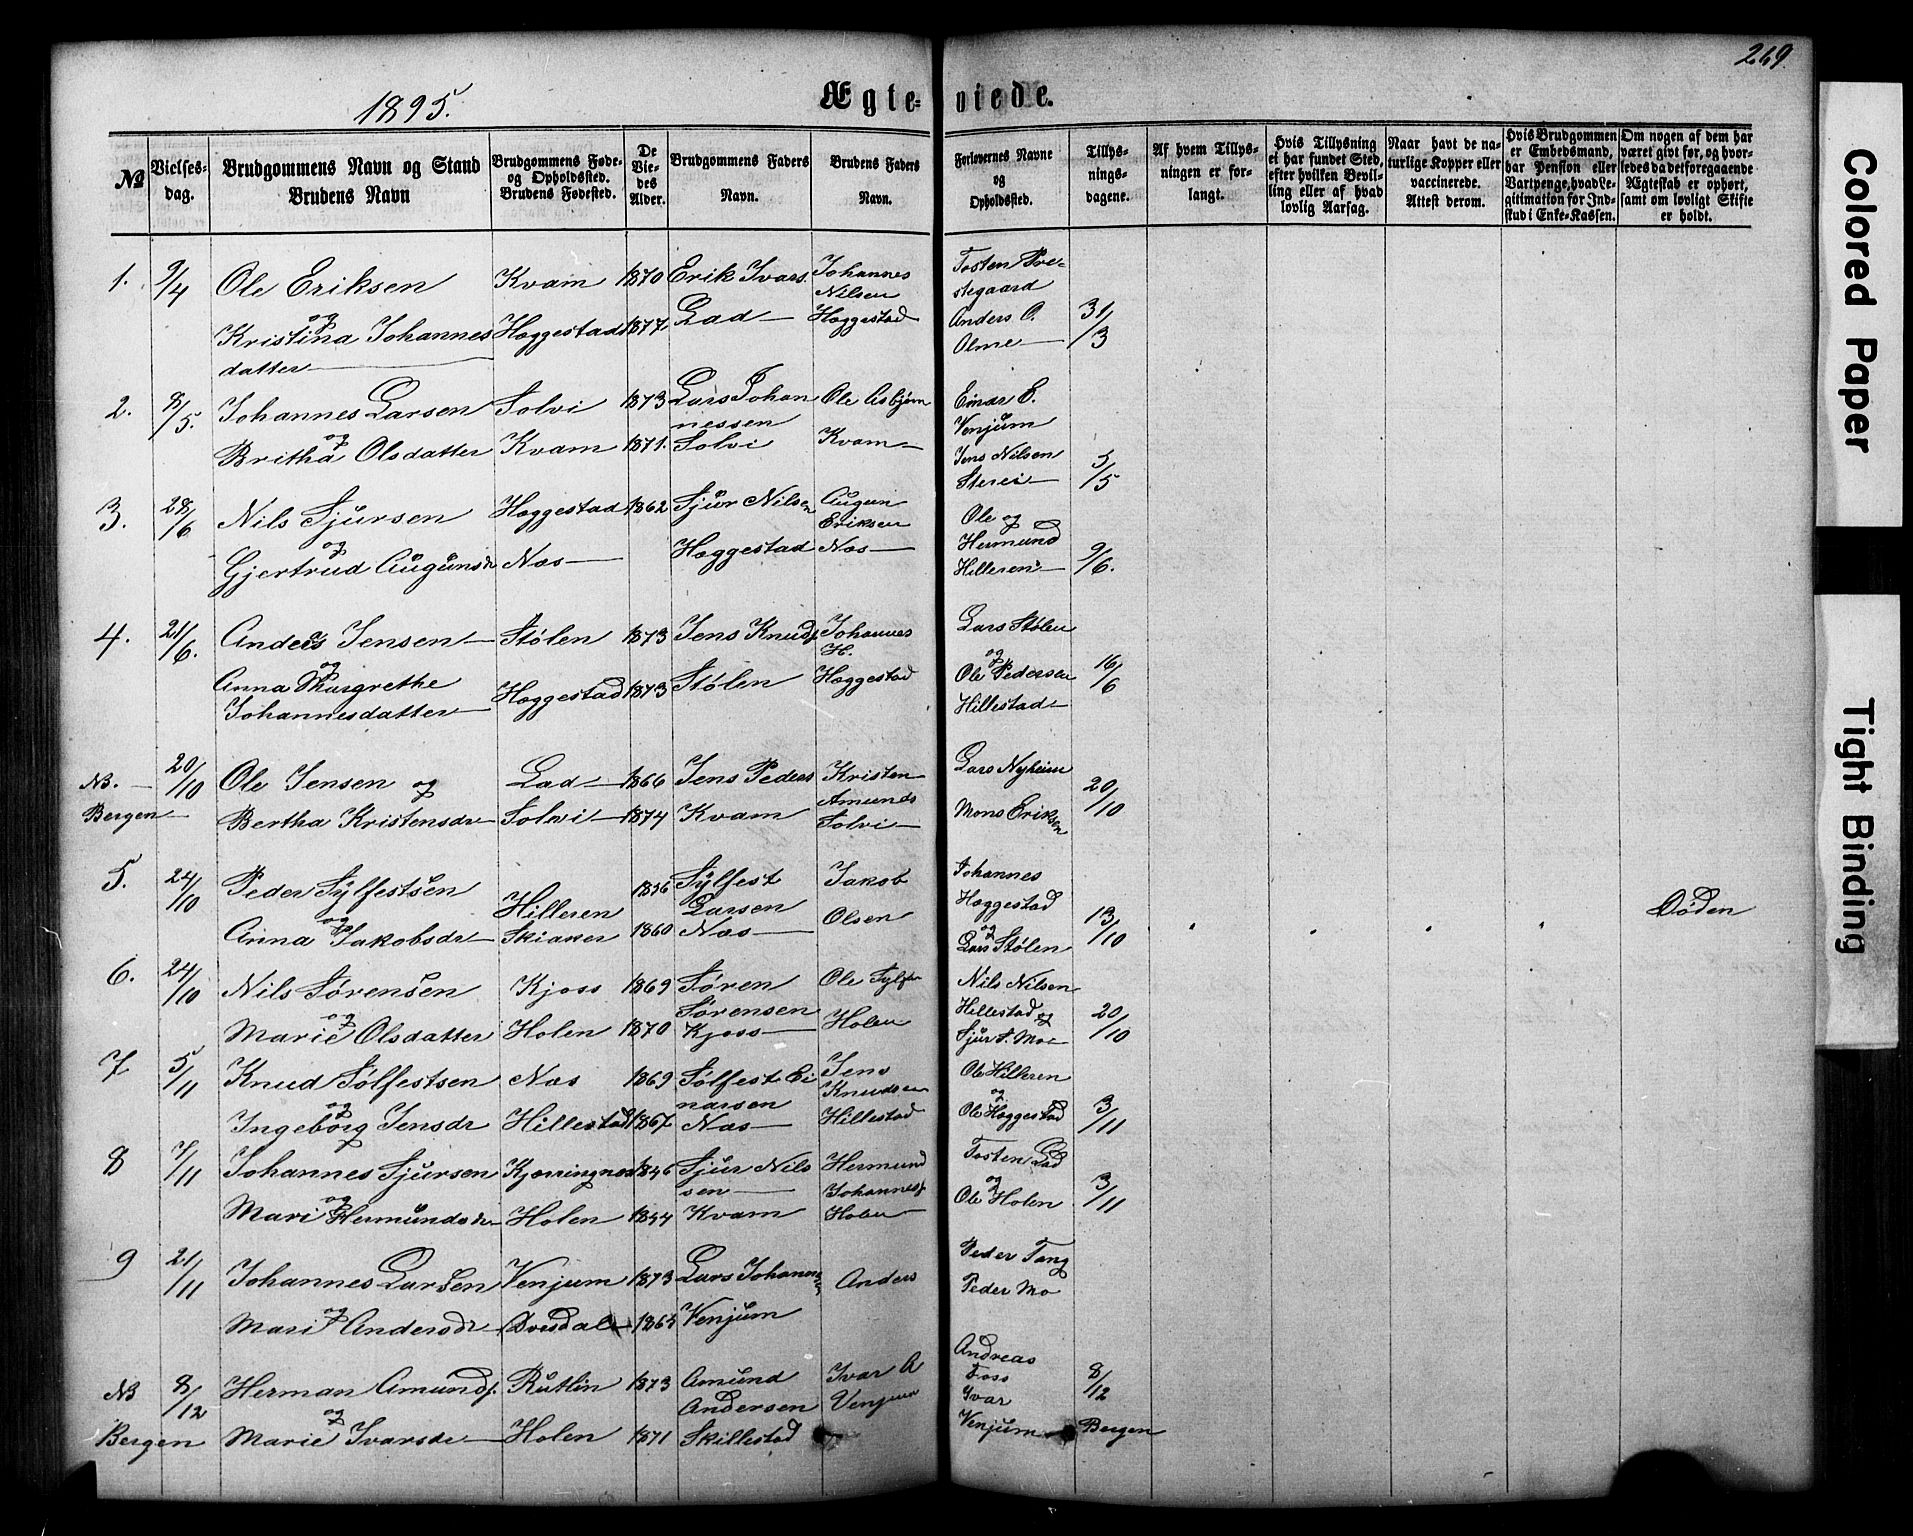 269
1895.
Ægteviede.
№
Vielsesdag.
Brudgommens Navn og Stand
Brudens Navn
Brudgommens Føde-
og Opholdssted.
Brudens Fødested.
De
Vie-
des
Alder.
Brudgommens Faders
Navn.
Brudens Faders
Navn.
Forlovernes Navne
og
Opholdssted.
Tillys-
nings-
dagene.
Af hvem Tillys-
ningen er for-
langt.
Hvis Tillysning
ei har fundet Sted,
efter hvilken Bevil-
ling eller af hvad
lovlig Aarsag.
Naar havt de na-
turlige Kopper eller
vaccinerede.
Attest derom.
Hvis Brudgommen
er Embedsmand,
har Pension eller
Vartpenge, hvad Le-
gitimation for Ind-
skud i Enke-Kassen.
Om nogen af dem har
været givt før, og hvor-
ledes da det foregaaende
Ægteskab er ophørt,
samt om lovligt Skifte
er holdt.
1. 9/4 Ole Eriksen Kvam 1870 Erik Ivars. Johannes Nilsen Tosten Pre-
stegaard
og
Kristina Johannes Hæggestad 1877. Lad Hæggestad Anders O. 31/3
datter Olme
2. 8/5. Johannes Larsen Solvi 1873 Lars Johan Ole Asbjørn Einar E.
og nessen Venjum
Britha Olsdatter Kvam 1871. Solvi Kvam Jens Nilsen 5/5
Sterei
3. 28/6 Nils Sjursen Hæggestad 1862 Sjur Nilsen Augun Eriksen Ole og
og Hermund
Gjertrud Augunsdr Næs Hæggestad Næs Hilleren 9/6.
4. 21/6. Anders Jensen Stølen 1873 Jens Knuds. Johannes H. Lars Stølen
og og
Anna Margrethe Hæggestad 1873 Stølen Hæggestad Ole Pedersen 16/6
Johannesdatter Hillestad
NB. 20/10 Ole Jensen og Lad 1866 Jens Peders Kristen Lars Nyheim 20/10
Bergen Bertha Kristensdr Solvi 1874 Kvam Amunds Solvi Mons Eriksen
5. 24/10 Peder Sylfestsen Hilleren 1856 Sylfest Larsen Jakob Johannes
og Hæggestad 13/10 Døden
Anna Jakobsdr Skiaker 1860 Næs Olsen og Lars Stølen
6. 24/10 Nils Sørensen Kjoss 1869 Søren Sørensen Ole Sylf Nils Nilsen
og Hillestad og 20/10
Marie Olsdatter Holen 1870 Kjoss Holen Sjur S. Mo
7 5/11 Knud Sølfestsen Næs 1869 Sølfest Ei Jens Knudsen Ole Hilleren
og narsen og
Ingeborg Jensdr Hillestad 1867 Næs Hillestad Ole Hæggestad 3/11
8 7/11 Johannes Sjursen Kjørringnæs 1846 Sjur Nils Hermund Tosten Lad
og sen Johannes. og
Mari Hermundsdr Holen 1854 Kvam Holen Ole Holen 3/11
9 21/11 Johannes Larsen Venjum 1873 Lars Johann Anders Peder Tang
og
Mari Andersdr 1865 Venjum Peder Mo
NB 8/12 Herman Amunds. Rutlin 1873 Amund Ivar A Andreas
og Andersen Venjum Foss 8/12
Ivar
Bergen Marie Ivarsdr Holen 1871 Skillestad Venjum Bergen
Colored Paper
Tight Binding